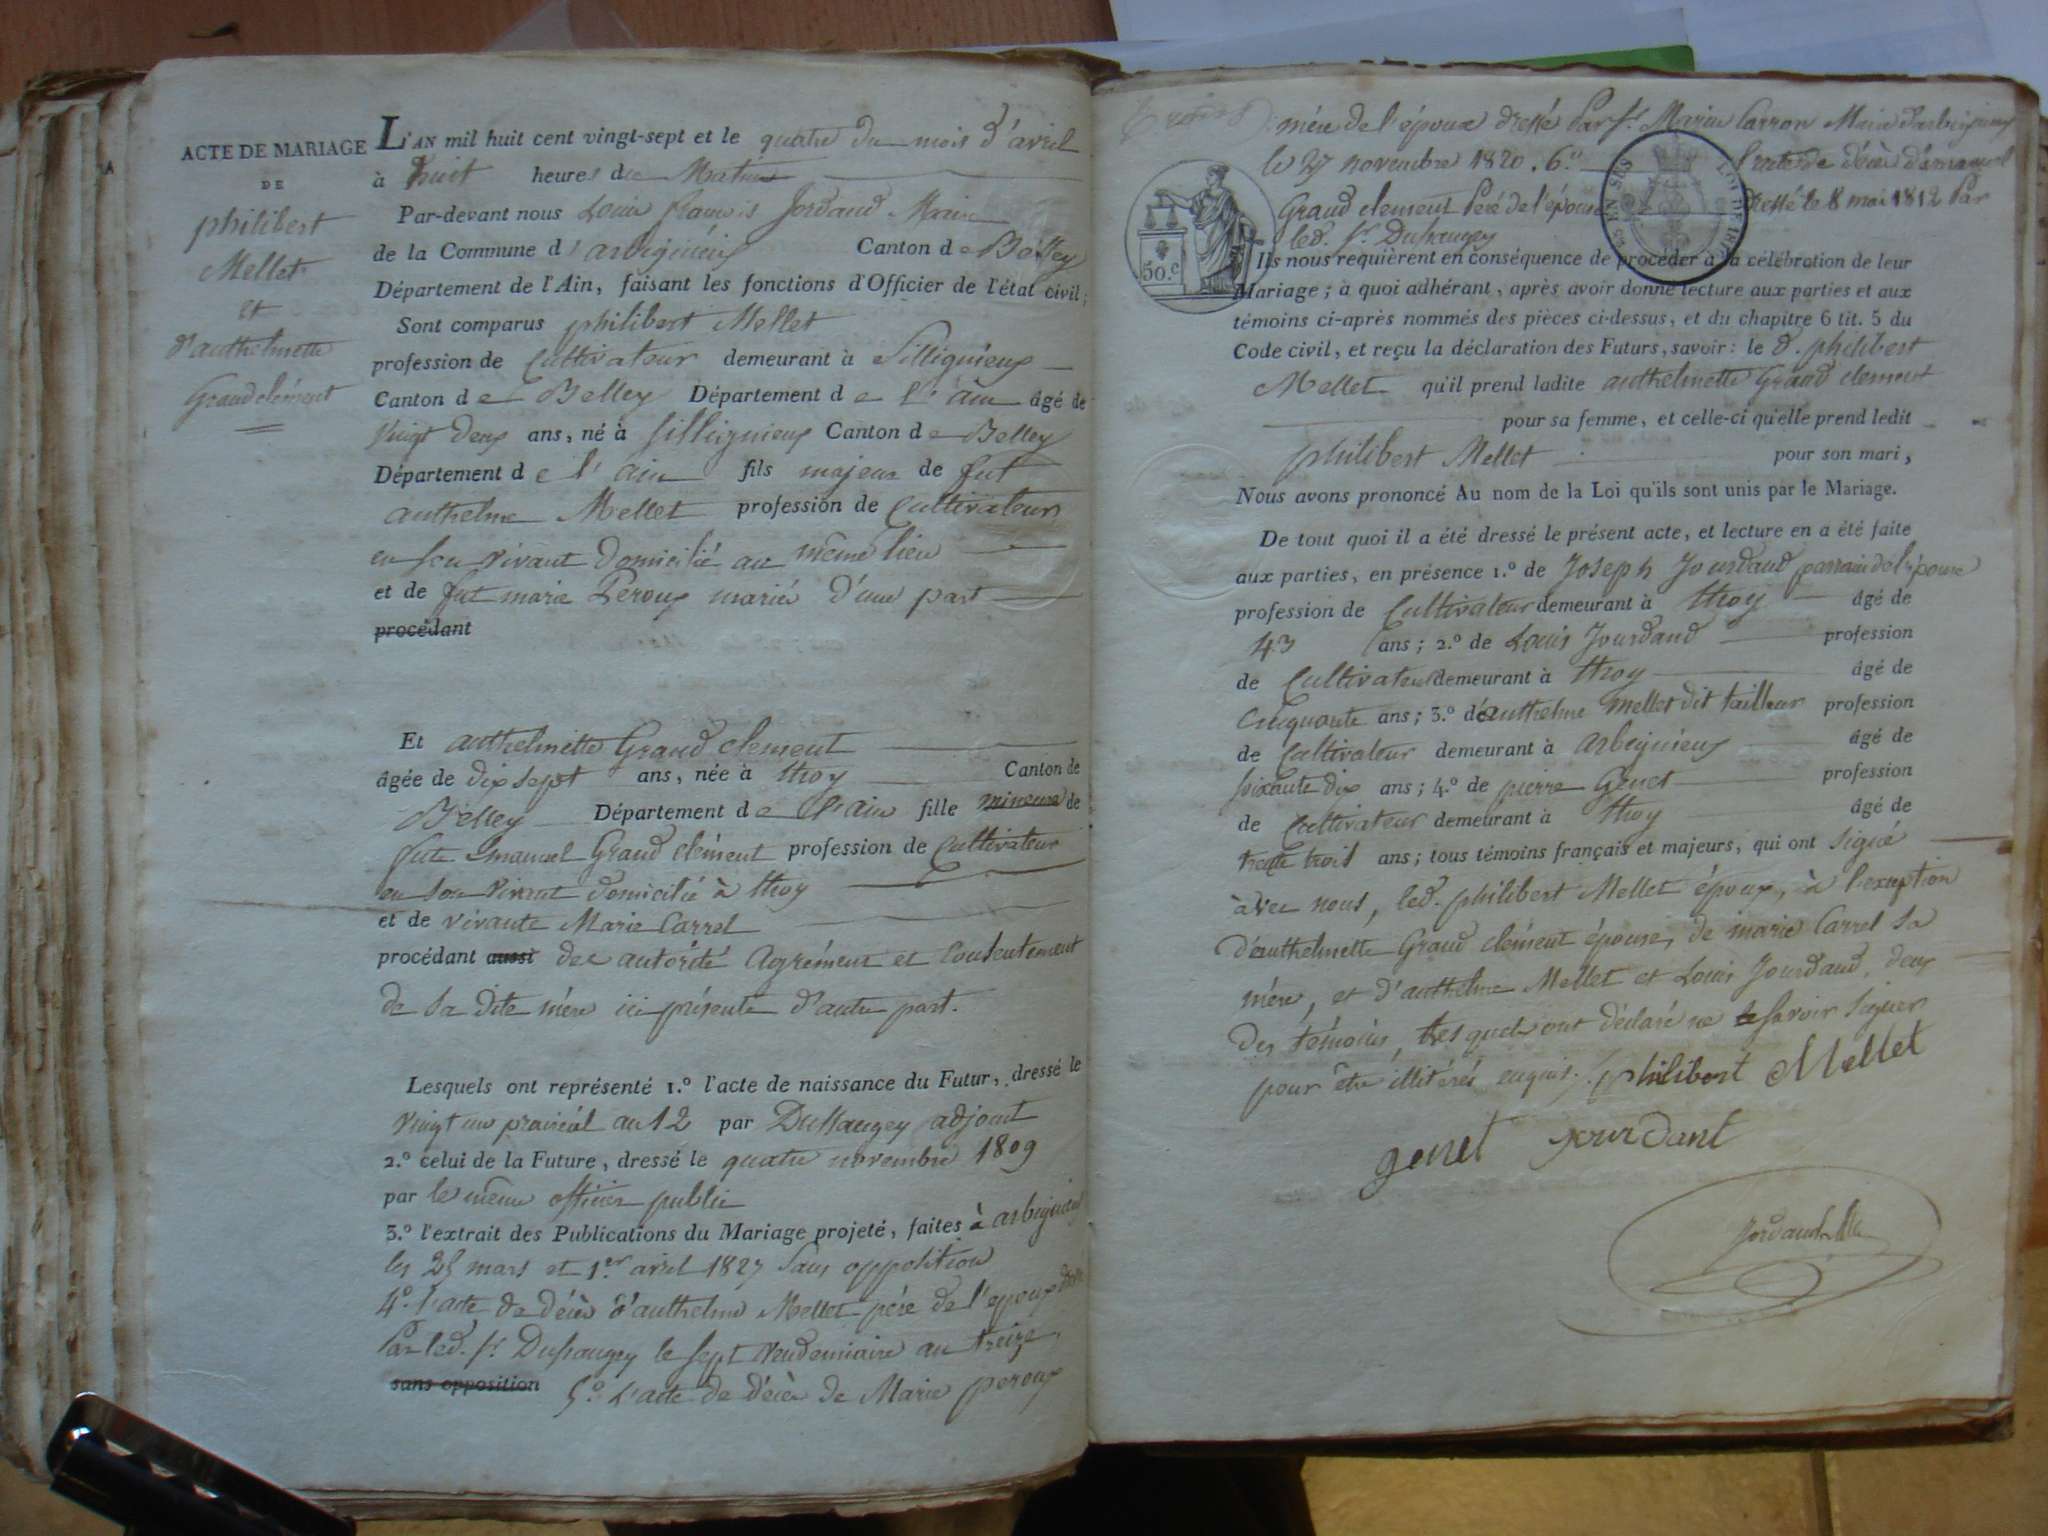 ACTE DE MARIAGE
DE
philibert
Mellet
et
d'anthelmette
Grand clément
L'AN mil huit cent vingt-sept et le quatre du mois d'avril
à huit heures du Matin
Par-devant nous Louis françois Jordand Maire
de la Commune d'arbignieu Canton de Belley
Département de l'Ain, faisant les fonctions d'Officier de l'état civil;
Sont comparus philibert Mellet
profession de Cultivateur demeurant à Sillignieux
Canton de Belley Département de l'ain âgé de
vingt deux ans, né à Sillignieux Canton de Belley
Département de l'ain fils majeur de fut
anthelme Mellet profession de Cultivateur
en son vivant domicilié au même lieu
et de fut marie Peroux mariés d'une part
procédant
Et anthelmette Grand clement
âgée de dix sept ans, née à thoy Canton de
Belley Département de l'ain fille mineure de
fute Emanuel Grand clément profession de Cultivateur
en son vivant domicilié à thoy
et de vivante Marie Carrel
procédant aussi de autorité agrément et Consentement
de sa dite mère ici présente d'autre part.
Lesquels ont représenté 1.º l'acte de naissance du Futur, dressé le
vingt un prairial an 12 par Dussaugey adjoint
2.º celui de la Future, dressé le quatre novembre 1809
par le même officier public
3.º l'extrait des Publications du Mariage projeté, faites à arbignieu
les 25 mars et 1.er avril 1827 sans opposition
4.º l'acte de décès d'anthelme Mellet père de l'epoux
Par led. sr. Dussaugey le sept vendemiaire an treize
sans opposition 5.º L'acte de décès de Marie peroux
mère de l'époux dressé Par sr. Marin Carron Maire d'arbignieu
le 27 novembre 1820. 6.º l'acte de décès d'emanuel
Grand clement Père de l'épouse dressé le 8 mai 1812 Par
led. sr. Dussaugey
50.c
Ils nous requièrent en conséquence de procéder à la célébration de leur
Mariage; à quoi adhérant, après avoir donné lecture aux parties et aux
témoins ci-après nommés des pièces ci-dessus, et du chapitre 6 tit. 5 du
Code civil, et reçu la déclaration des Futurs, savoir: le d. philibert
Mellet qu'il prend ladite anthelmette Grand clement
pour sa femme, et celle-ci qu'elle prend ledit
philibert Mellet pour son mari,
Nous avons prononcé Au nom de la Loi qu'ils sont unis par le Mariage.
De tout quoi il a été dressé le présent acte, et lecture en a été faite
aux parties, en présence 1.º de Joseph Jourdand parrain de l'épouse
profession de Cultivateur demeurant à thoy âgé de
43 ans; 2.º de Louis Jourdand profession
de Cultivateur demeurant à thoy âgé de
Cinquante ans; 3.º d'anthelme Mellet dit tailleur profession
de Cultivateur demeurant à arbignieux âgé de
soixante dix ans; 4.º de pierre Genet profession
de Cultivateur demeurant à thoy âgé de
trente trois ans; tous témoins français et majeurs, qui ont signé
avec nous, led. philibert Mellet époux, à l'exeption
d'anthelmette Grand clément épouse, de marie Carrel sa
mère, et d'anthelme Mellet et Louis Jourdand, deux
des témoins, lesquels ont déclaré ne le savoir signer
pour être illitérés enquis. philibert Mellet
genet Jourdant